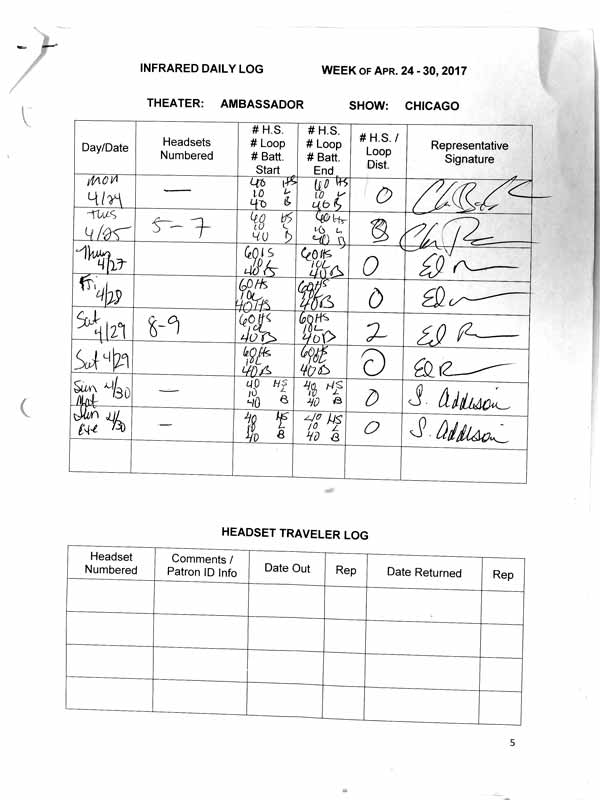 INFRARED DAILY LOG WEEK OF APR. 24 - 30, 2017
THEATER: AMBASSADOR SHOW: CHICAGO
Day/Date Headsets Numbered # H.S. # Loop # Batt. Start # H.S. # Loop # Batt. End # H.S. / Loop Dist. Representative Signature
Mon 4/24 — 40 HS 10 L 40 B 40 HS 10 L 40 B 0
Tues 4/25 5-7 40 HS 10 L 40 B 40 HS 10 L 40 B
Thurs 4/27 60 HS 10L 40B 60HS 10L 40B 0 Ed
Fri 4/28 60HS 10L 40HS 60HS 10L 40B 0 Ed
Sat 4/29 8-9 60HS 10L 40B 60HS 10L 40B 2 Ed
Sat 4/29 60HS 10L 40B 60HS 10L 40B 0 Ed
Sun 4/30 Mat — 40 HS 10 L 40 B 40 HS 10 L 40 B 0 S. Addison
Sun 4/30 Eve — 40 HS 10 L 40 B 40 HS 10 L 40 B 0 S. Addison
HEADSET TRAVELER LOG
Headset Numbered Comments / Patron ID Info Date Out Rep Date Returned Rep
5